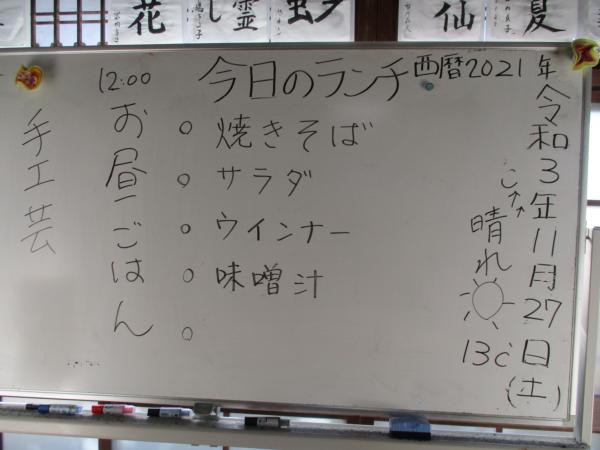 花
し
霊
仙
夏
今日のランチ
西暦2021年
令和3年11月27日(土)
晴れ
13℃
○焼きそば
○サラダ
○ウインナー
○味噌汁
○
12:00
お昼ごはん
手工芸